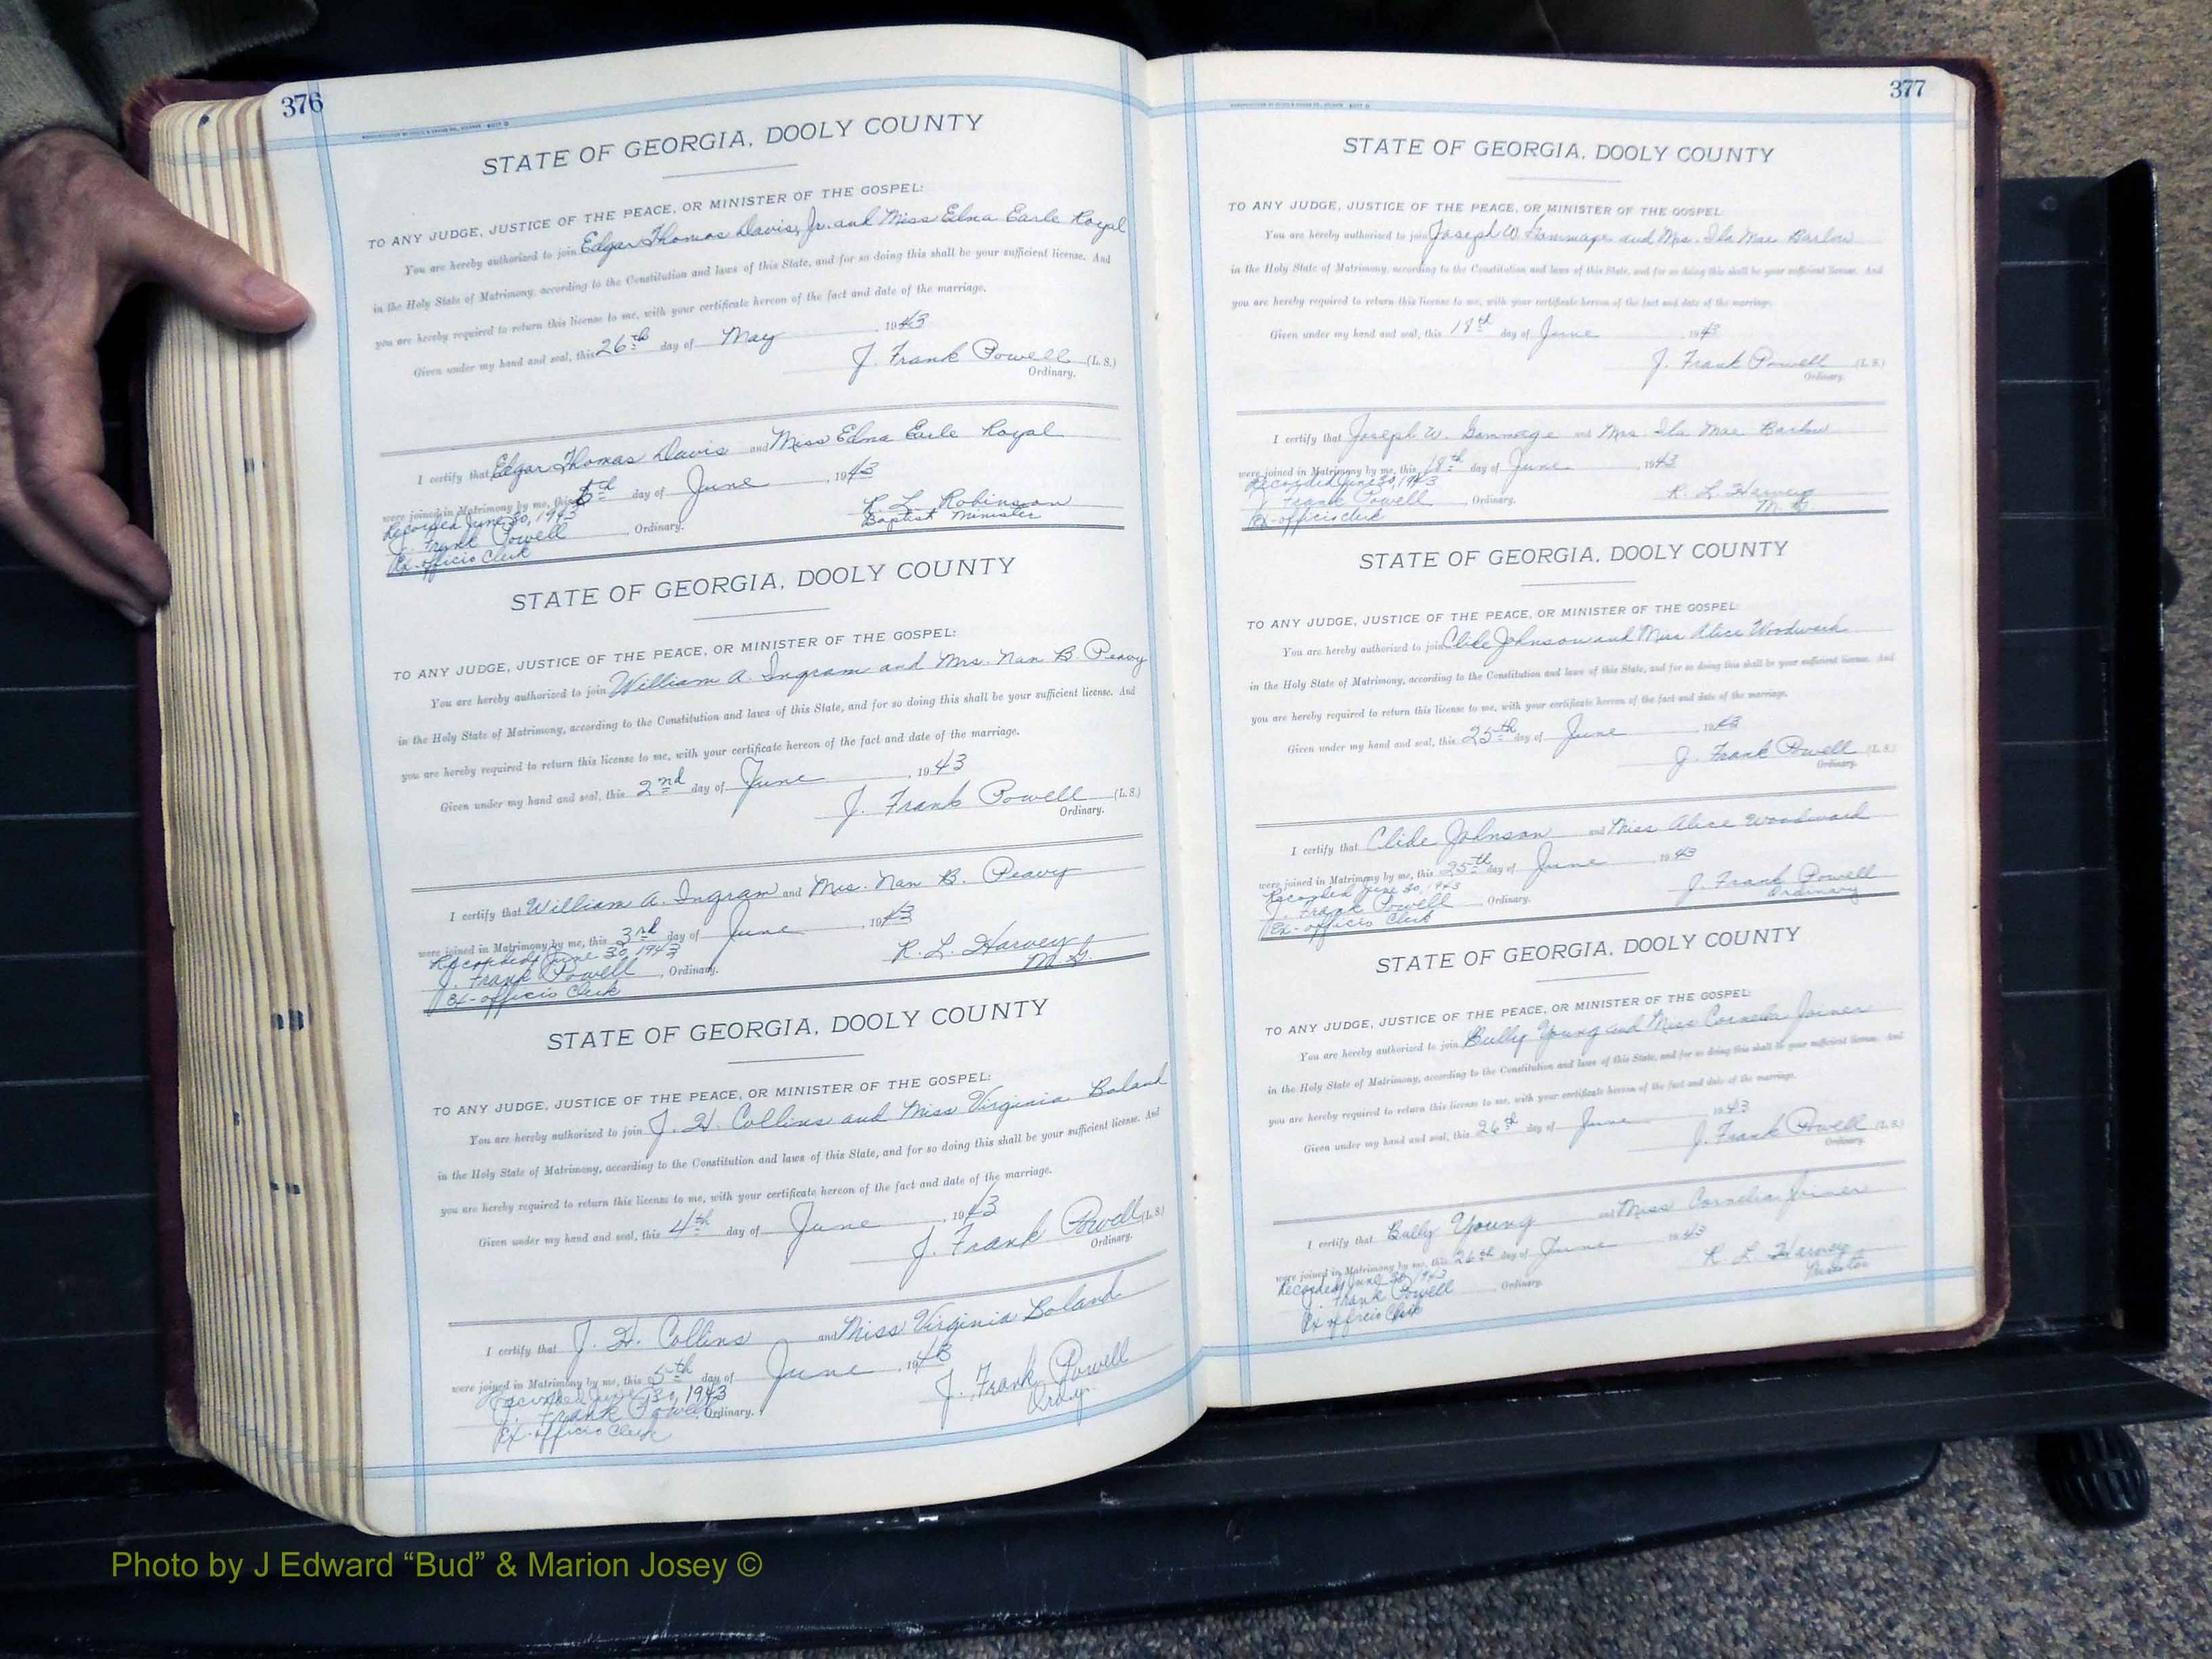 376
STATE OF GEORGIA, DOOLY COUNTY
TO ANY JUDGE, JUSTICE OF THE PEACE, OR MINISTER OF THE GOSPEL:
You are hereby authorized to join Edgar Thomas Davis, Jr. and Miss Edna Earle Royal
in the Holy State of Matrimony, according to the Constitution and laws of this State, and for so doing this shall be your sufficient license. And
you are hereby required to return this license to me, with your certificate hereon of the fact and date of the marriage.
Given under my hand and seal, this 26th day of May, 1943
J. Frank Powell (L. S.)
Ordinary.
I certify that Edgar Thomas Davis and Miss Edna Earle Royal
were joined in Matrimony by me, this 5th day of June, 1943
Recorded June 30, 1943
R. L. Robinson
J. Frank Powell, Ordinary.
Baptist Minister
Ex-officio Clerk
STATE OF GEORGIA, DOOLY COUNTY
TO ANY JUDGE, JUSTICE OF THE PEACE, OR MINISTER OF THE GOSPEL:
You are hereby authorized to join William A. Ingram and Mrs. Nan B. Peavy
in the Holy State of Matrimony, according to the Constitution and laws of this State, and for so doing this shall be your sufficient license. And
you are hereby required to return this license to me, with your certificate hereon of the fact and date of the marriage.
Given under my hand and seal, this 2nd day of June, 1943
J. Frank Powell (L. S.)
Ordinary.
I certify that William A. Ingram and Mrs. Nan B. Peavy
were joined in Matrimony by me, this 3rd day of June, 1943
Recorded June 30, 1943
R. L. Harvey
J. Frank Powell, Ordinary.
M. G.
Ex-officio Clerk
STATE OF GEORGIA, DOOLY COUNTY
TO ANY JUDGE, JUSTICE OF THE PEACE, OR MINISTER OF THE GOSPEL:
You are hereby authorized to join J. H. Collins and Miss Virginia Boland
in the Holy State of Matrimony, according to the Constitution and laws of this State, and for so doing this shall be your sufficient license. And
you are hereby required to return this license to me, with your certificate hereon of the fact and date of the marriage.
Given under my hand and seal, this 4th day of June, 1943
J. Frank Powell (L. S.)
Ordinary.
I certify that J. H. Collins and Miss Virginia Boland
were joined in Matrimony by me, this 5th day of June, 1943
Recorded June 30, 1943
J. Frank Powell
J. Frank Powell, Ordinary.
Ordy.
Ex-officio Clerk
377
STATE OF GEORGIA, DOOLY COUNTY
TO ANY JUDGE, JUSTICE OF THE PEACE, OR MINISTER OF THE GOSPEL:
You are hereby authorized to join Joseph W. Gammage and Mrs. Ila Mae Barlow
in the Holy State of Matrimony, according to the Constitution and laws of this State, and for so doing this shall be your sufficient license. And
you are hereby required to return this license to me, with your certificate hereon of the fact and date of the marriage.
Given under my hand and seal, this 18th day of June, 1943
J. Frank Powell (L. S.)
Ordinary.
I certify that Joseph W. Gammage and Mrs. Ila Mae Barlow
were joined in Matrimony by me, this 18th day of June, 1943
Recorded June 30, 1943
J. Frank Powell, Ordinary.
R. L. Harvey
Ex-officio Clerk
M. G.
STATE OF GEORGIA, DOOLY COUNTY
TO ANY JUDGE, JUSTICE OF THE PEACE, OR MINISTER OF THE GOSPEL:
You are hereby authorized to join Clide Johnson and Miss Alice Woodward
in the Holy State of Matrimony, according to the Constitution and laws of this State, and for so doing this shall be your sufficient license. And
you are hereby required to return this license to me, with your certificate hereon of the fact and date of the marriage.
Given under my hand and seal, this 25th day of June, 1943
J. Frank Powell (L. S.)
Ordinary.
I certify that Clide Johnson and Miss Alice Woodward
were joined in Matrimony by me, this 25th day of June, 1943
Recorded June 30, 1943
J. Frank Powell
J. Frank Powell, Ordinary.
Ordinary
Ex-officio Clerk
STATE OF GEORGIA, DOOLY COUNTY
TO ANY JUDGE, JUSTICE OF THE PEACE, OR MINISTER OF THE GOSPEL:
You are hereby authorized to join Bully Young and Miss Cornelia Joiner
in the Holy State of Matrimony, according to the Constitution and laws of this State, and for so doing this shall be your sufficient license. And
you are hereby required to return this license to me, with your certificate hereon of the fact and date of the marriage.
Given under my hand and seal, this 26th day of June, 1943
J. Frank Powell (L. S.)
Ordinary.
I certify that Bully Young and Miss Cornelia Joiner
were joined in Matrimony by me, this 26th day of June, 1943
Recorded June 30, 1943
R. L. Harvey
J. Frank Powell, Ordinary.
Ex officio Clerk
Photo by J Edward “Bud” & Marion Josey ©